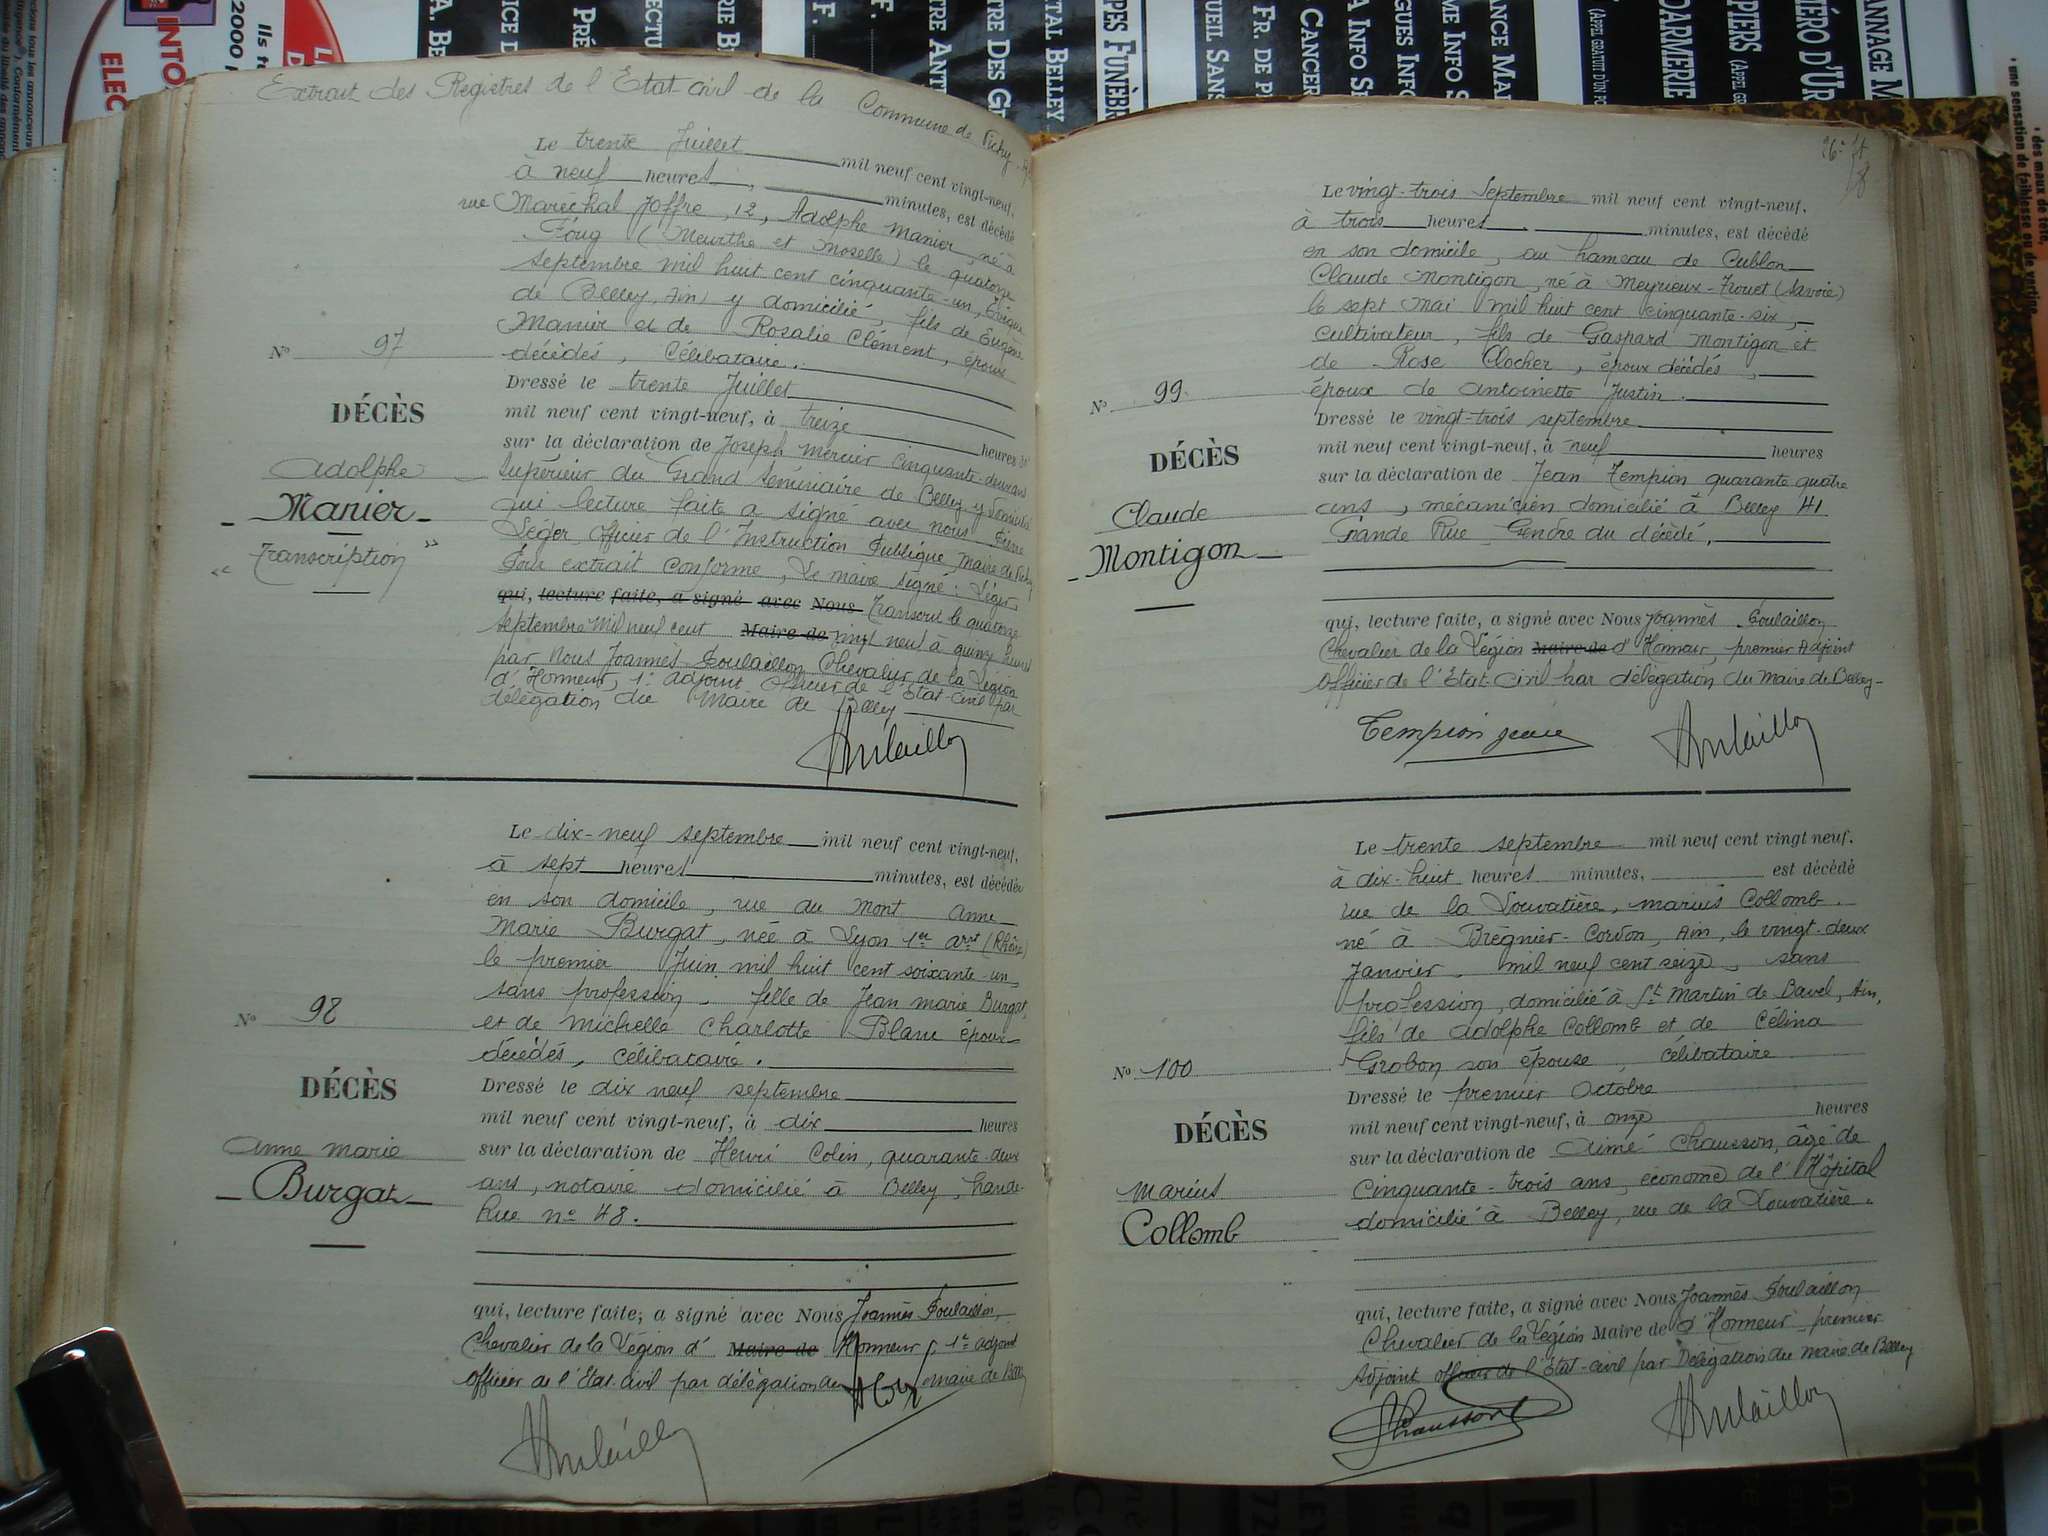 Extrait des Registres de l'Etat civil de la Commune de Vichy
Le trente Juillet mil neuf cent vingt-neuf,
à neuf heures, minutes, est décédé
rue Maréchal Joffre, 12, Adolphe Manier, né à
Foug (Meurthe et Moselle) le quatorze
septembre mil huit cent cinquante-un, Evêque
de Belley, Ain) y domicilié, fils de Eugène
Manier et de Rosalie Clément, époux
décédés, Célibataire.
Dressé le trente Juillet
mil neuf cent vingt-neuf, à treize heures
sur la déclaration de Joseph Mercier cinquante-deux ans
Supérieur du Grand Séminaire de Belley y domicilié
qui lecture faite a signé avec nous Pierre
Léger Officier de l'Instruction Publique, Maire de Vichy
Pour extrait conforme, Le maire signé: Léger
qui, lecture faite, a signé avec Nous Transcrit le quatorze
septembre Mil neuf cent Maire de vingt neuf à quinze heures
par Nous Joannès Poulaillon Chevalier de la Légion
d'Honneur, 1er adjoint Officier de l'Etat-Civil par
délégation du Maire de Belley
No 97
DÉCÈS
Adolphe
Manier
" Transcription "
Poulaillon
Le dix-neuf septembre mil neuf cent vingt-neuf,
à sept heures minutes, est décédée
en son domicile, rue du Mont Anne
Marie Burgat, née à Lyon 1er arrt (Rhône)
le premier Juin mil huit cent soixante-un
sans profession, fille de Jean Marie Burgat,
et de Michelle Charlotte Blanc époux
décédés, célibataire.
Dressé le dix neuf septembre
mil neuf cent vingt-neuf, à dix heures
sur la déclaration de Henri Colin, quarante-deux
ans, notaire domicilié à Belley, Grande
Rue no 48.
qui, lecture faite, a signé avec Nous Joannès Poulaillon,
Chevalier de la Légion d' Maire de Honneur, 1er adjoint
officier de l'Etat-Civil par délégation du maire de Belley
No 98
DÉCÈS
Anne Marie
Burgat
Poulaillon
Le vingt-trois Septembre mil neuf cent vingt-neuf,
à trois heures minutes, est décédé
en son domicile, au hameau de Cublon
Claude Montigon, né à Meyrieux-Trouet (Savoie)
le sept Mai mil huit cent cinquante-six,
cultivateur, fils de Gaspard Montigon et
de Rose Clocher, époux décédés,
époux de Antoinette Justin.
Dressé le vingt-trois septembre
mil neuf cent vingt-neuf, à neuf heures
sur la déclaration de Jean Tempion quarante quatre
ans, mécanicien domicilié à Belley 41
Grande Rue Gendre du décédé,
qui, lecture faite, a signé avec Nous Joannès Poulaillon
Chevalier de la Légion Maire de d'Honneur, premier Adjoint
Officier de l'Etat-Civil par délégation du Maire de Belley
No 99
DÉCÈS
Claude
Montigon
Tempion Jean Poulaillon
Le trente septembre mil neuf cent vingt neuf.
à dix-huit heures minutes, est décédé
rue de la Louvatière, Marius Collomb.
né à Brégnier-Cordon, Ain, le vingt-deux
Janvier mil neuf cent seize, sans
profession, domicilié à St Martin de Bavel, Ain,
fils de Adolphe Collomb et de Célina
Grobon son épouse, célibataire
Dressé le premier Octobre
mil neuf cent vingt-neuf, à onze heures
sur la déclaration de Aimé Chausson, âgé de
Cinquante-trois ans, économe de l'Hôpital
domicilié à Belley, rue de la Louvatière.
qui, lecture faite, a signé avec Nous Joannès Poulaillon
Chevalier de la Légion Maire de d'Honneur premier
Adjoint officier de l'Etat-civil par Délégation du Maire de Belley
No 100
DÉCÈS
Marius
Collomb
Chausson Poulaillon